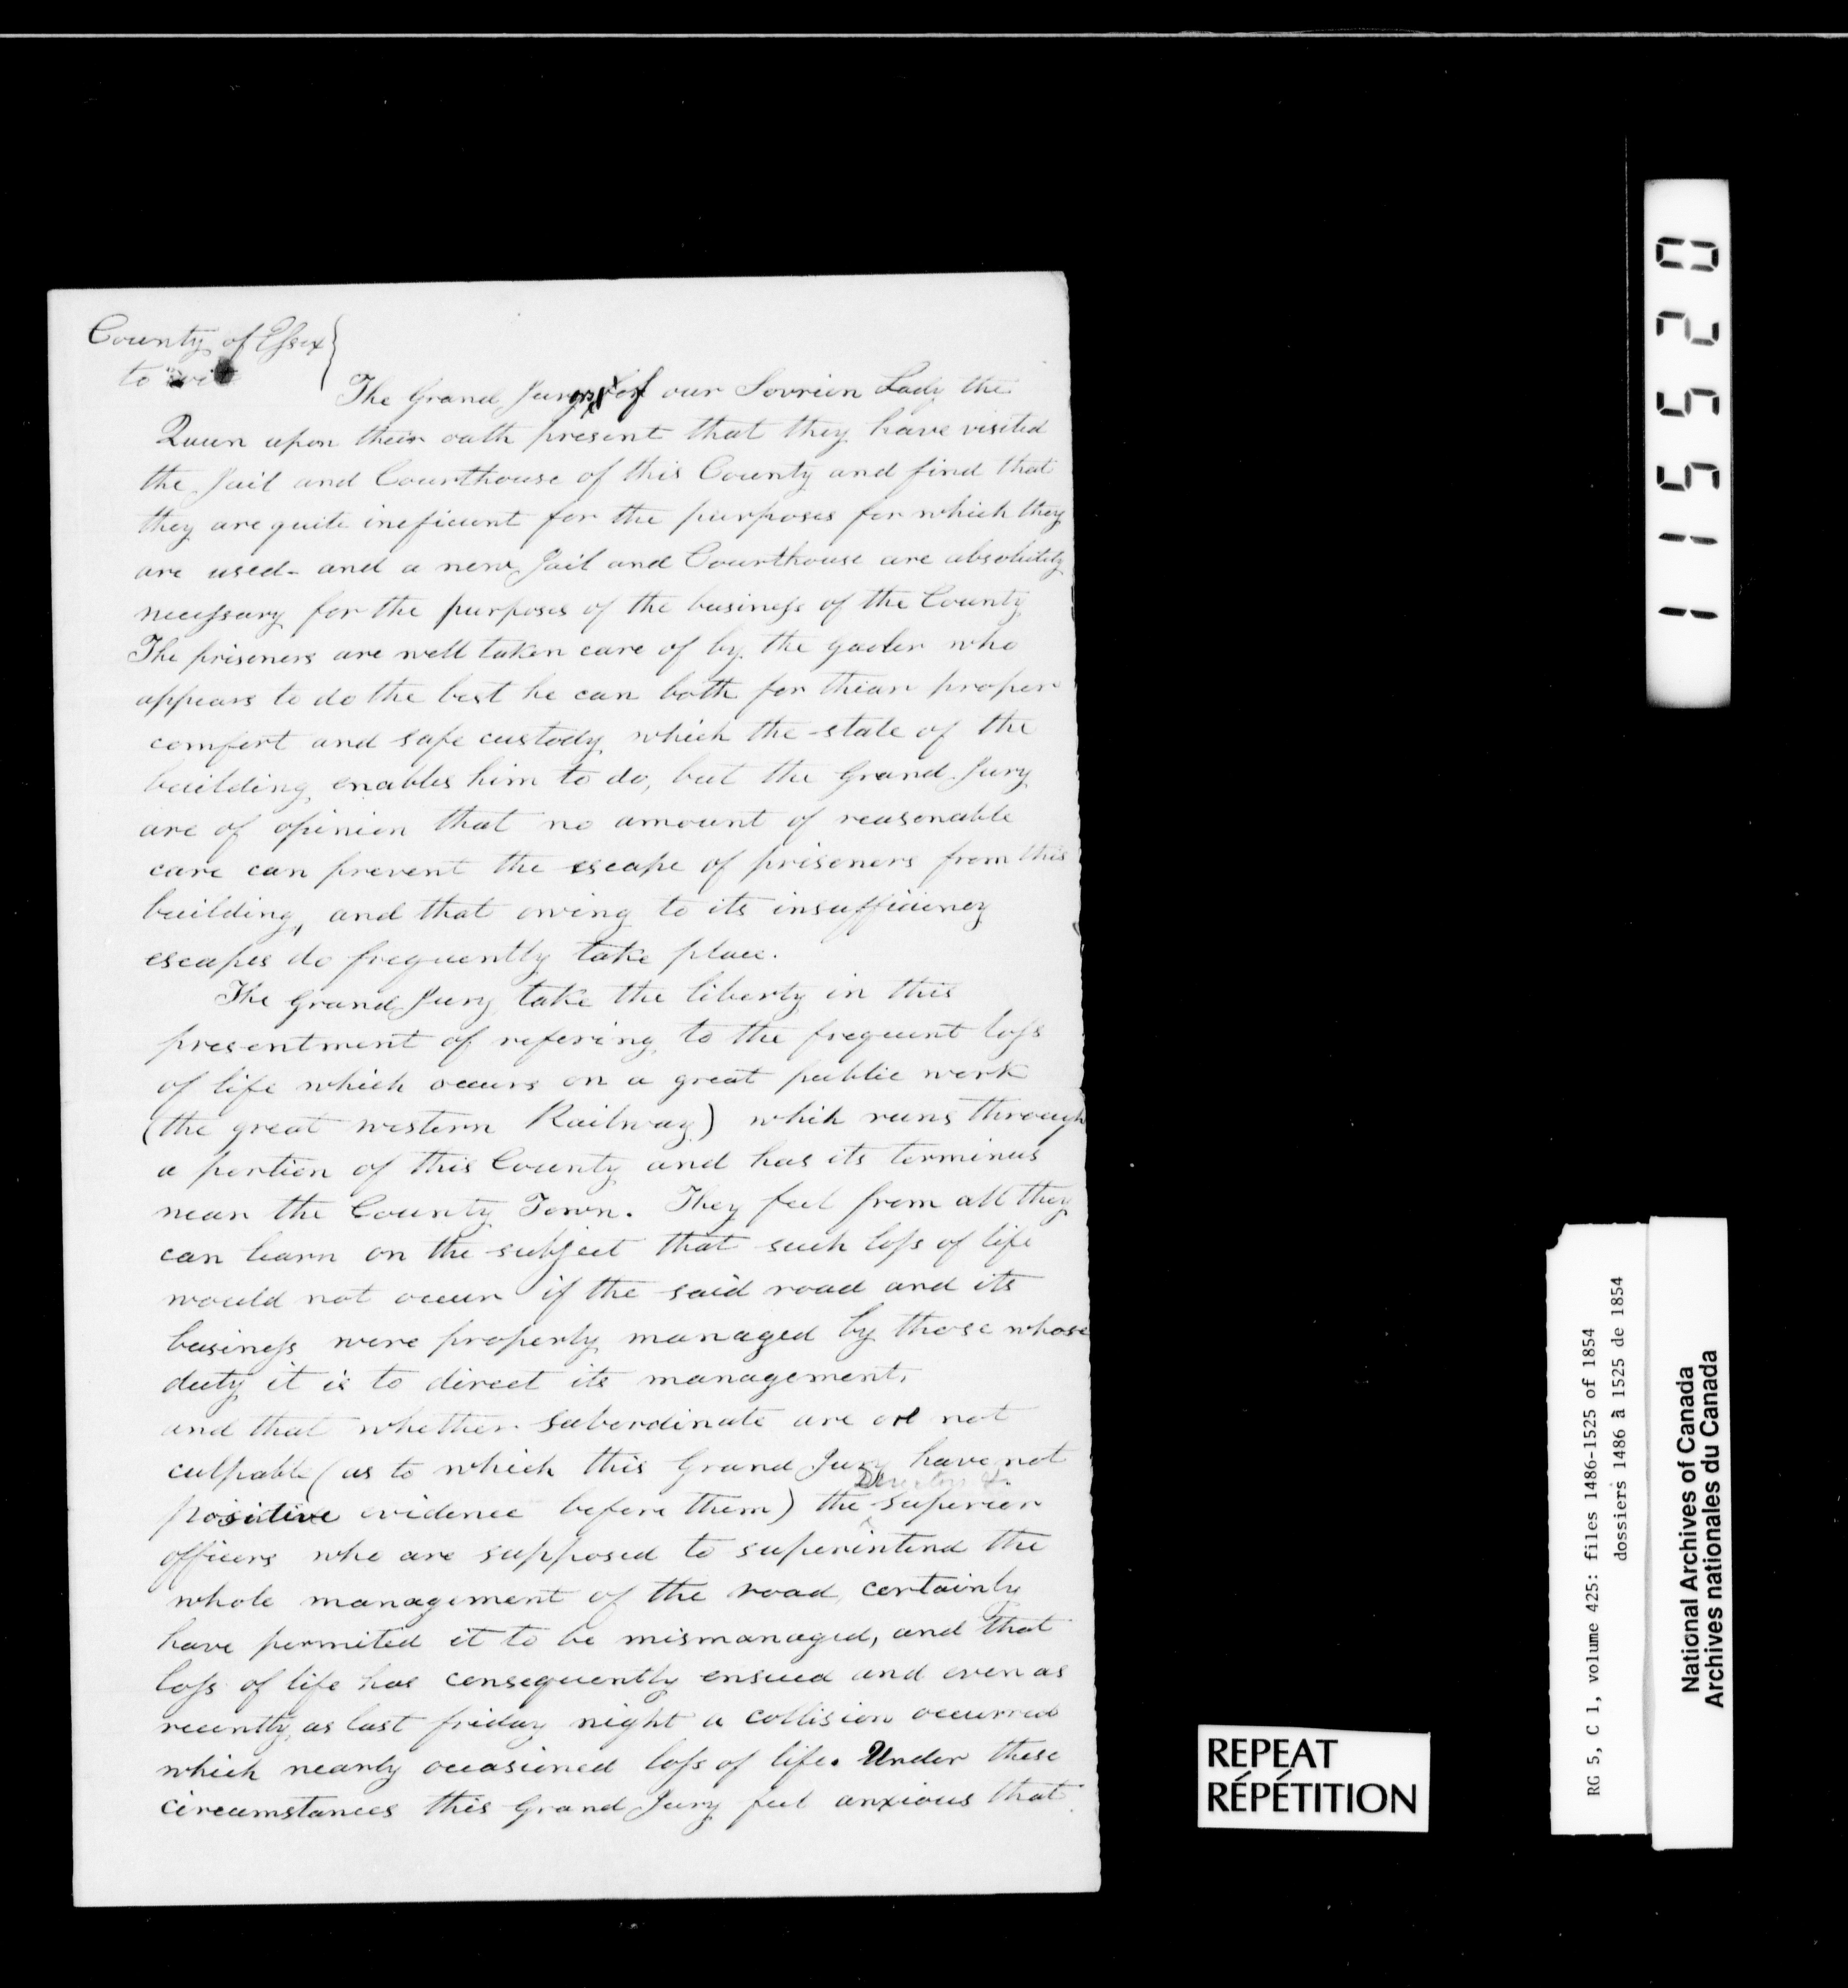 County of Essex }
to wit
The Grand Jurors of our Sovrien Lady the
Queen upon their oath present that they have visited
the Jail and Courthouse of this County and find that
they are quite ineficient for the purposes for which they
are used - and a new Jail and Courthouse are absolutely
necessary for the purposes of the business of the County
The prisoners are well taken care of by the gaoler who
appears to do the best he can both for thier proper
comfort and safe custody which the state of the
building enables him to do, but the Grand Jury
are of opinion that no amount of reasonable
care can prevent the escape of prisoners from this
building, and that owing to its insufficiency
escapes do frequently take place.
The Grand Jury take the liberty in this
presentment of refering to the frequent loss
of life which occurs on a great public work
(the great western Railway) which runs through
a portion of this County and has its terminus
near the County Town. They feel from all they
can learn on the subject that such loss of life
would not occur if the said road and its
business were properly managed by those whose
duty it is to direct its management.
and that whether subordinate are or not
culpable (as to which this Grand Jury have not
Directors &
positive evidence before them) the superior
officers who are supposed to superintend the
whole management of the road, certainly
have permited it to be mismanaged, and that
loss of life has consequently ensued and even as
recently as last friday night a collision occurred
which nearly occasioned loss of life. Under these
circumstances this Grand Jury feel anxious that
115520
RG 5, C 1, volume 425: files 1486-1525 of 1854
dossiers 1486 à 1525 de 1854
National Archives of Canada
Archives nationales du Canada
REPEAT
RÉPÉTITION